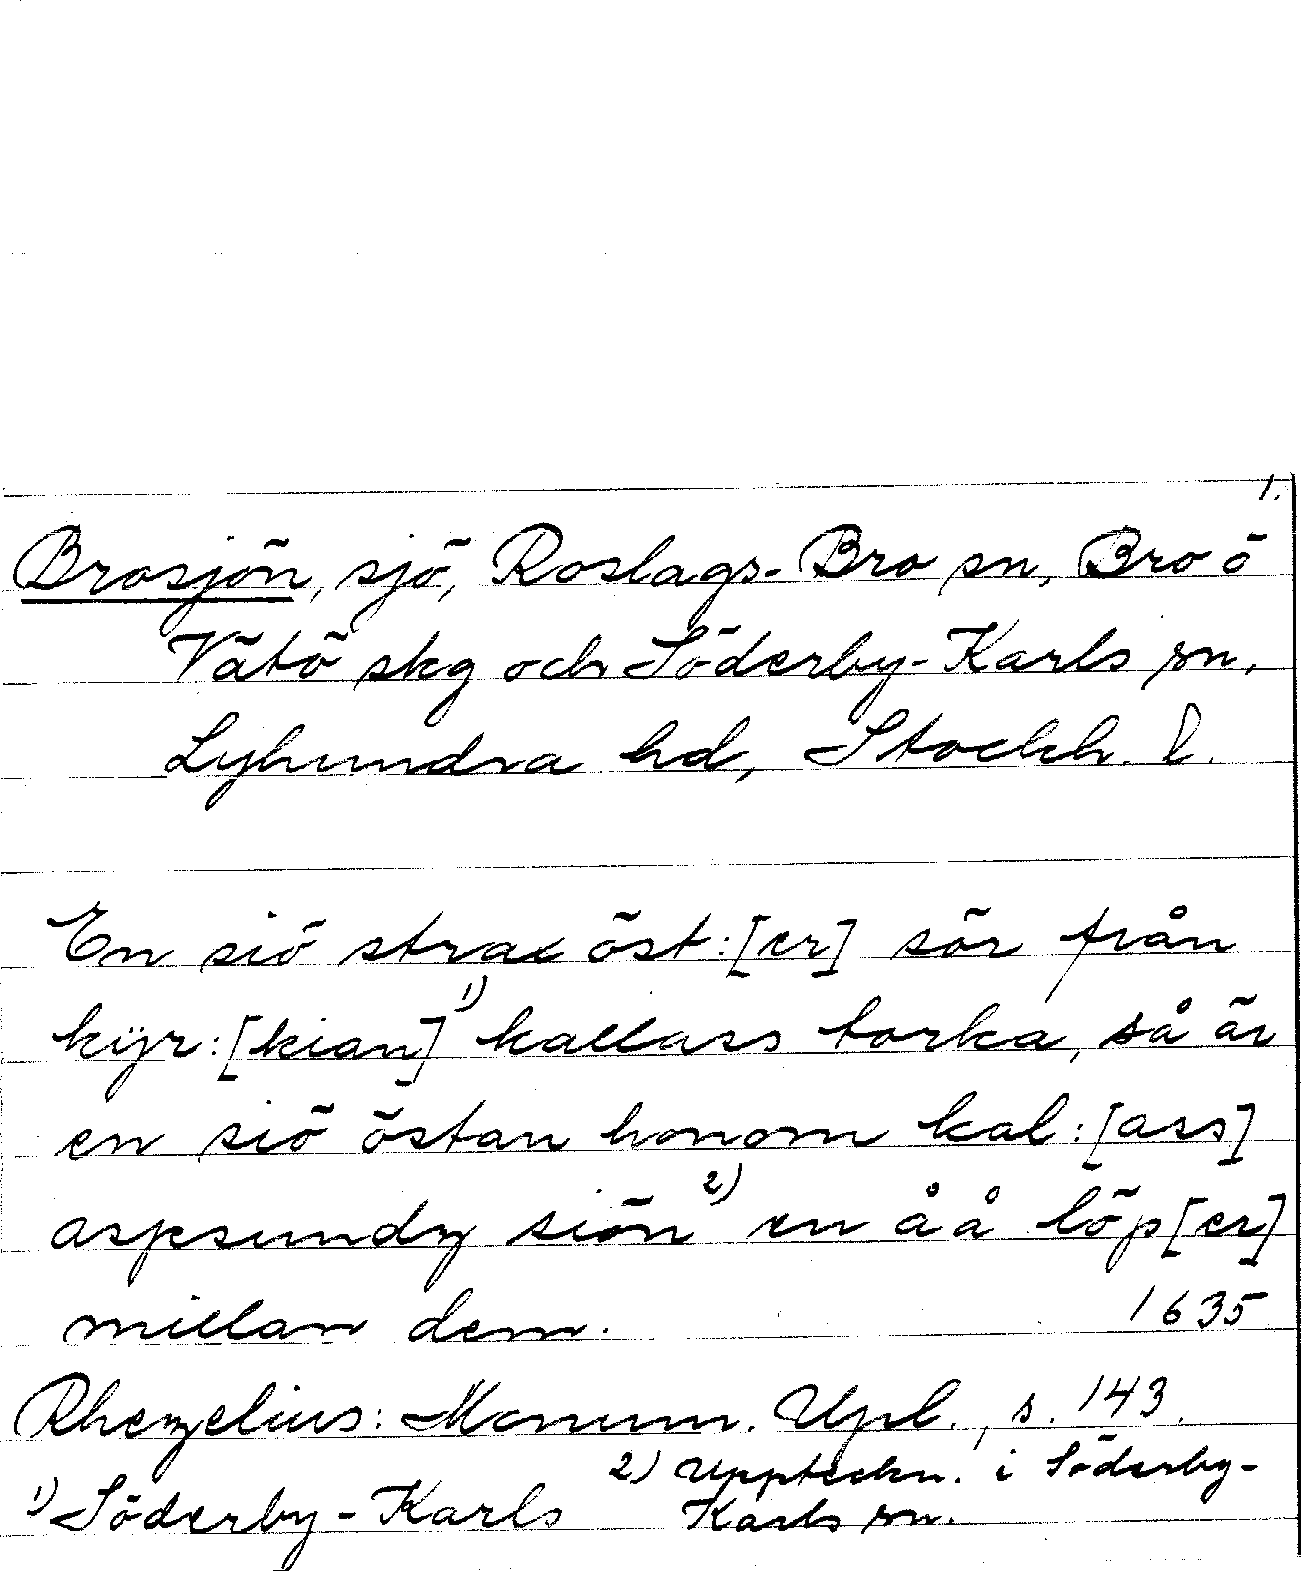 1.
Brosjön, sjö, Roslags-Bro sn, Bro o
Vätö skg och Söderby-Karls sn,
Lyhundra hd, Stockh. l.
En siö strax öst:[er] sör från
kijr:[kian]¹⁾ kallass torka, så är
en siö östan honom kal:[ass]
aspsundz siön²⁾ en åå löp[er]
millan dem. 1635
Rhezelius: Monum. Upl., s. 143.
1) Söderby-Karls 2) Uppteckn. i Söderby-
Karls sn.